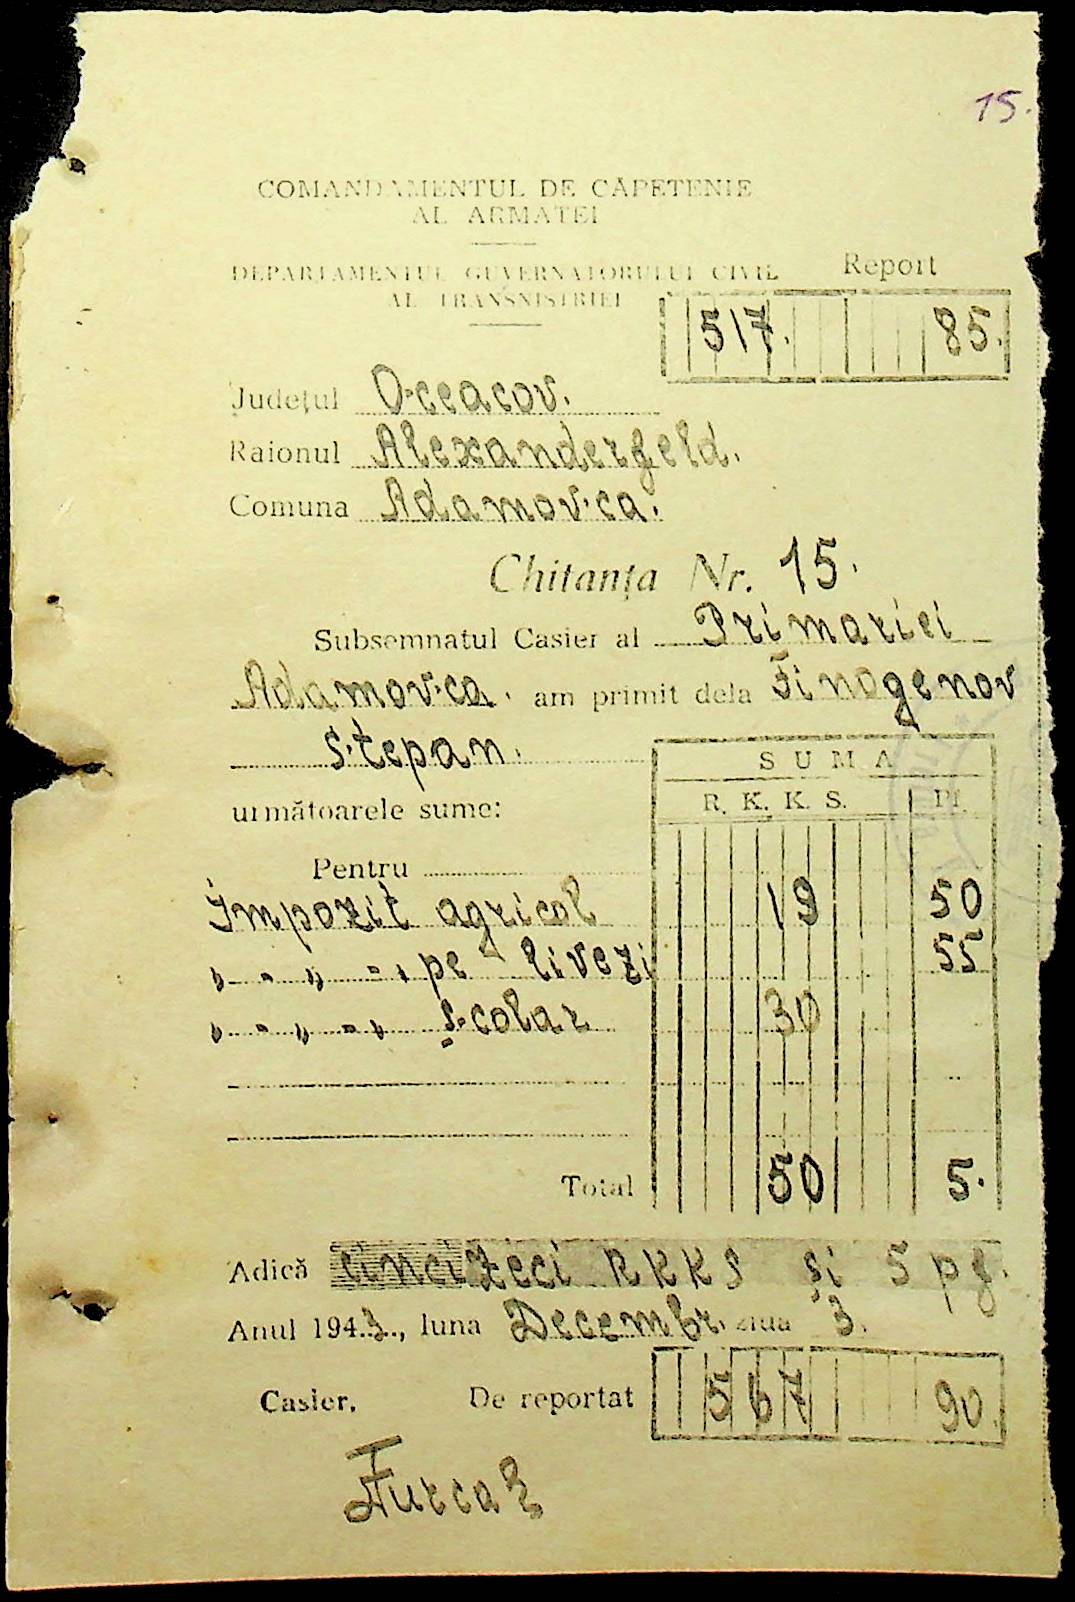 15.
COMANDAMENTUL DE CĂPETENIE
AL ARMATEI
DEPARTAMENTUL GUVERNATORULUI CIVIL
AL TRANSNISTRIEI
Report
517. 85.
Județul Oceacov.
Raionul Alexanderfeld.
Comuna Adamovca.
Chitanța Nr. 15.
Subsemnatul Casier al Primariei
Adamovca. am primit dela Finogenov
Stepan.
următoarele sume:
SUMA
R. K. K. S. Pf.
Pentru
Impozit agricol 19 50
" - " - " pe livezi 55
" - " - " școlar 30
Total 50 5.
Adică cincizeci RKKS și 5 pf.
Anul 1943., luna Decembr. ziua 3.
Casier, De reportat 567 90.